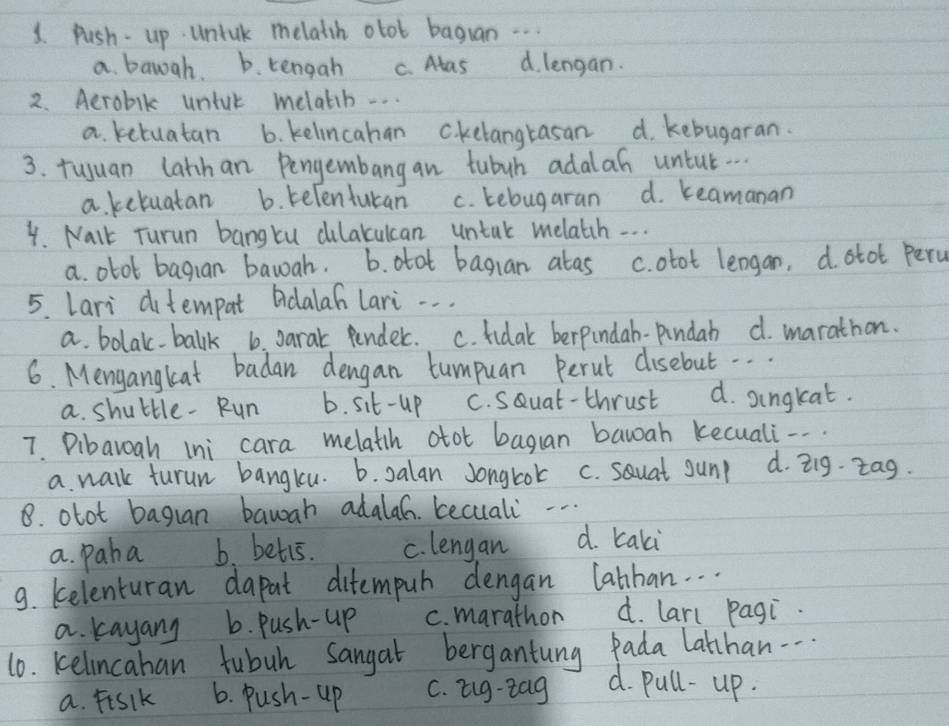 1. Push-up untuk melatih otot bagian ...
a. bawah. b. tengah c. Atas d. lengan.
2. Aerobik untuk melatih ...
a. kekuatan b. kelincahan c. ketangkasan d. kebugaran.
3. tujuan latihan Pengembangan tubuh adalah untuk ...
a. kekuatan b. kelenturan c. kebugaran d. keamanan
4. Naik Turun bangku dilakukan untuk melatih ...
a. otot bagian bawah. b. otot bagian atas c. otot lengan, d. otot Peru
5. Lari ditempat adalah lari ...
a. bolak-balik b. jarak Pendek. c. tidak berpindah-Pindah d. marathon.
6. Mengangkat badan dengan tumpuan Perut disebut ...
a. Shuttle-Run b. sit-up c. SQuat-thrust d. singkat.
7. Dibawah ini cara melatih otot bagian bawah kecuali ...
a. naik turun bangku. b. jalan jongkok c. squat junp d. zig-zag.
8. otot bagian bawah adalah. kecuali ...
a. paha b. betis. c. lengan d. kaki
9. kelenturan dapat ditempuh dengan latihan...
a. kayang b. Push-up c. marathon d. lari Pagi.
10. kelincahan tubuh sangat bergantung Pada latihan ...
a. Fisik b. Push-up c. zig-zag d. Pull-up.